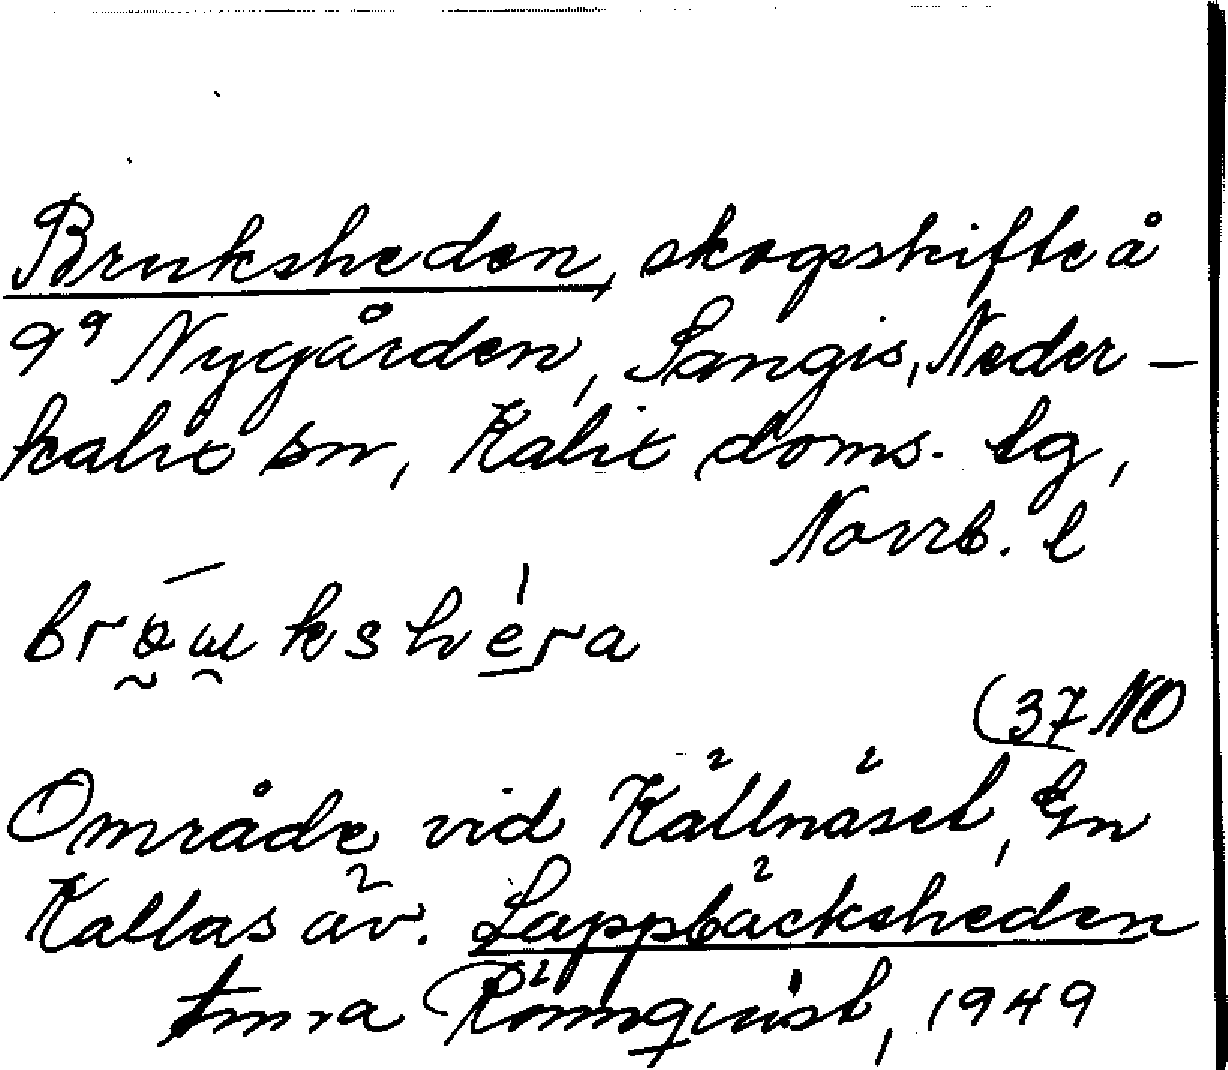 Bruksheden, skogsskifte å
gg Nygården, Sangis, Neder-
kalix sn, Kalix doms. lg,
Norrb. l
(37 NO
Område vid Källnäset,
Kallas äv. Lappbäcksheden
Rönnquist, 1949